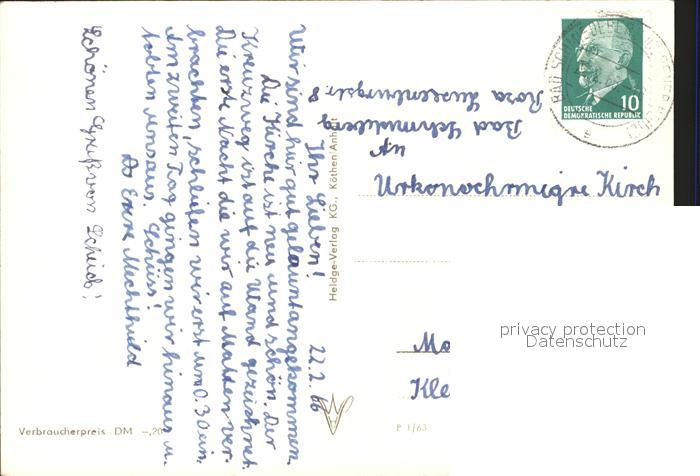 22.2.66
Ihr Lieben!
Wir sind hier gut gelaunt angekommen.
Die Kirche ist neu und schön. Der
Kreuzweg ist auf die Wand gezeichnet.
Die erste Nacht die wir auf Matten ver-
brachten, schliefen wir erst um 0.30 ein.
Am zweiten Tag gingen wir hinaus u.
tobten uns aus. Tschüss!
Eure Mechthild
Schönen Gruß von
Heldge-Verlag KG., Köthen/Anhalt
Bad Schmiedeberg
Rosa Luxemburgstr. 8
An
Kirch
Mo
Kle
DEUTSCHE
DEMOKRATISCHE REPUBLIK
10
BAD SCHMIEDEBERG
privacy protection
Datenschutz
Verbraucherpreis DM -,20
P 1/63